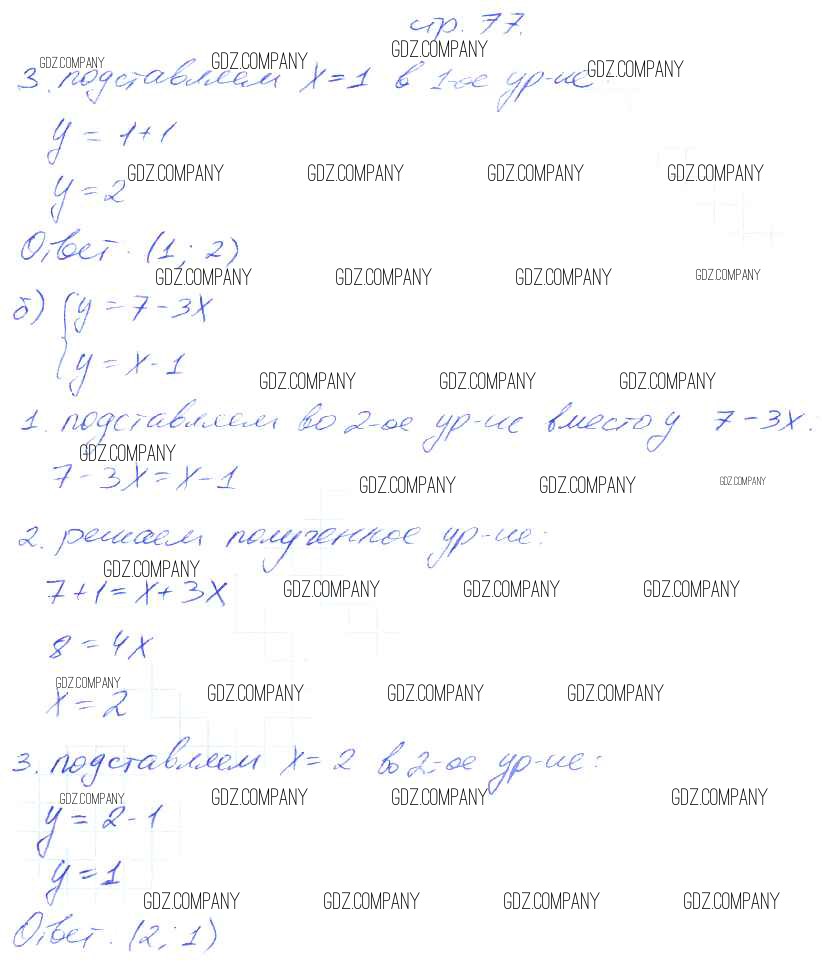 стр. 77.
GDZ.COMPANY GDZ.COMPANY GDZ.COMPANY GDZ.COMPANY
3. подставляем x=1 в 1-ое ур-ие
y = 1+1
y = 2
GDZ.COMPANY GDZ.COMPANY GDZ.COMPANY GDZ.COMPANY
Ответ. (1; 2)
GDZ.COMPANY GDZ.COMPANY GDZ.COMPANY GDZ.COMPANY
б) { y = 7 - 3x
y = x - 1
GDZ.COMPANY GDZ.COMPANY GDZ.COMPANY
1. подставляем во 2-ое ур-ие вместо y 7 - 3x:
GDZ.COMPANY GDZ.COMPANY GDZ.COMPANY GDZ.COMPANY
7 - 3x = x - 1
2. решаем полученное ур-ие:
GDZ.COMPANY GDZ.COMPANY GDZ.COMPANY GDZ.COMPANY
7 + 1 = x + 3x
8 = 4x
GDZ.COMPANY GDZ.COMPANY GDZ.COMPANY GDZ.COMPANY
x = 2
3. подставляем x = 2 во 2-ое ур-ие:
GDZ.COMPANY GDZ.COMPANY GDZ.COMPANY GDZ.COMPANY
y = 2 - 1
y = 1
GDZ.COMPANY GDZ.COMPANY GDZ.COMPANY GDZ.COMPANY
Ответ. (2; 1)